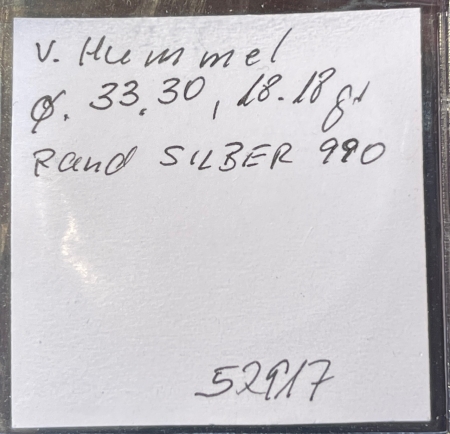 v. Hummel
Ø. 33.30, 18.18 gr
Rand SILBER 990
52917